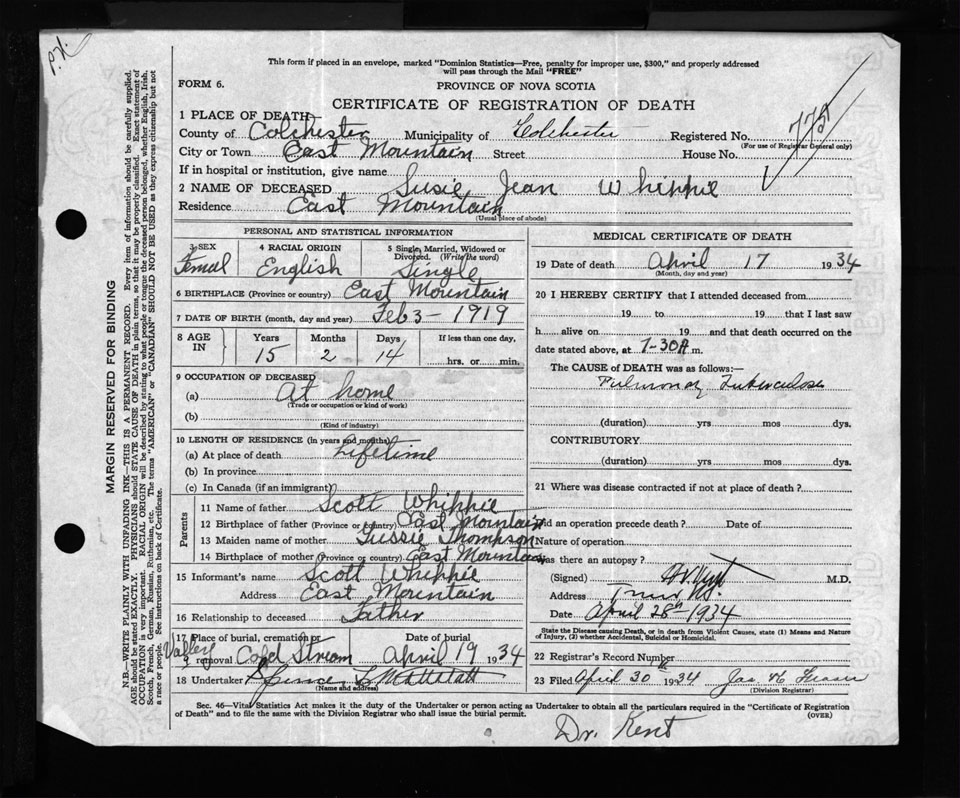 P.H.
This form if placed in an envelope, marked "Dominion Statistics—Free, penalty for improper use, $300," and properly addressed
will pass through the Mail "FREE"
FORM 6.
PROVINCE OF NOVA SCOTIA
CERTIFICATE OF REGISTRATION OF DEATH
1 PLACE OF DEATH
County of Colchester Municipality of Colchester Registered No.
(For use of Registrar General only)
City or Town East Mountain Street House No.
If in hospital or institution, give name
2 NAME OF DECEASED Susie Jean Whippie
Residence East Mountain
(Usual place of abode)
PERSONAL AND STATISTICAL INFORMATION
3 SEX 4 RACIAL ORIGIN 5 Single, Married, Widowed or Divorced. (Write the word)
Femal English Single
6 BIRTHPLACE (Province or country) East Mountain
7 DATE OF BIRTH (month, day and year) Feb 3 - 1919
8 AGE IN Years Months Days If less than one day,
15 2 14 hrs. or min.
9 OCCUPATION OF DECEASED
(a) At home
(Trade or occupation or kind of work)
(b)
(Kind of industry)
10 LENGTH OF RESIDENCE (in years and months)
(a) At place of death Lifetime
(b) In province
(c) In Canada (if an immigrant)
Parents
11 Name of father Scott Whippie
12 Birthplace of father (Province or country) East Mountain
13 Maiden name of mother Tussie Thompson
14 Birthplace of mother (Province or country) East Mountain
15 Informant's name Scott Whippie
Address East Mountain
16 Relationship to deceased Father
17 Place of burial, cremation or removal Date of burial
Valley Cold Stream April 19 1934
18 Undertaker
(Name and address)
MEDICAL CERTIFICATE OF DEATH
19 Date of death April 17 1934
(Month, day and year)
20 I HEREBY CERTIFY that I attended deceased from
19 to 19 that I last saw
h alive on 19 and that death occurred on the
date stated above, at 7-30A m.
The CAUSE of DEATH was as follows:—
Pulmonary Tuberculosis
(duration) yrs mos dys.
CONTRIBUTORY
(duration) yrs mos dys.
21 Where was disease contracted if not at place of death?
Did an operation precede death? Date of
Nature of operation
Was there an autopsy?
(Signed) M.D.
Address Truro NS.
Date April 28th 1934
State the Disease causing Death, or in death from Violent Causes, state (1) Means and Nature
of Injury, (2) whether Accidental, Suicidal or Homicidal.
22 Registrar's Record Number
23 Filed April 30 1934 Jas
(Division Registrar)
Sec. 46—Vital Statistics Act makes it the duty of the Undertaker or person acting as Undertaker to obtain all the particulars required in the "Certificate of Registration
of Death" and to file the same with the Division Registrar who shall issue the burial permit.
(OVER)
Dr. Kent
MARGIN RESERVED FOR BINDING
N.B.—WRITE PLAINLY WITH UNFADING INK—THIS IS A PERMANENT RECORD. Every item of information should be carefully supplied.
AGE should be stated EXACTLY. PHYSICIANS should STATE CAUSE OF DEATH in plain terms, so that it may be properly classified. Exact statement of
OCCUPATION is very important. RACIAL ORIGIN will be described by stating to what people or tongue the deceased person belonged, whether English, Irish,
Scotch, French, German, Russian, Ruthenian, etc. The terms "AMERICAN" or "CANADIAN" SHOULD NOT BE USED as they express citizenship but not
a race or people. See instructions on back of Certificate.